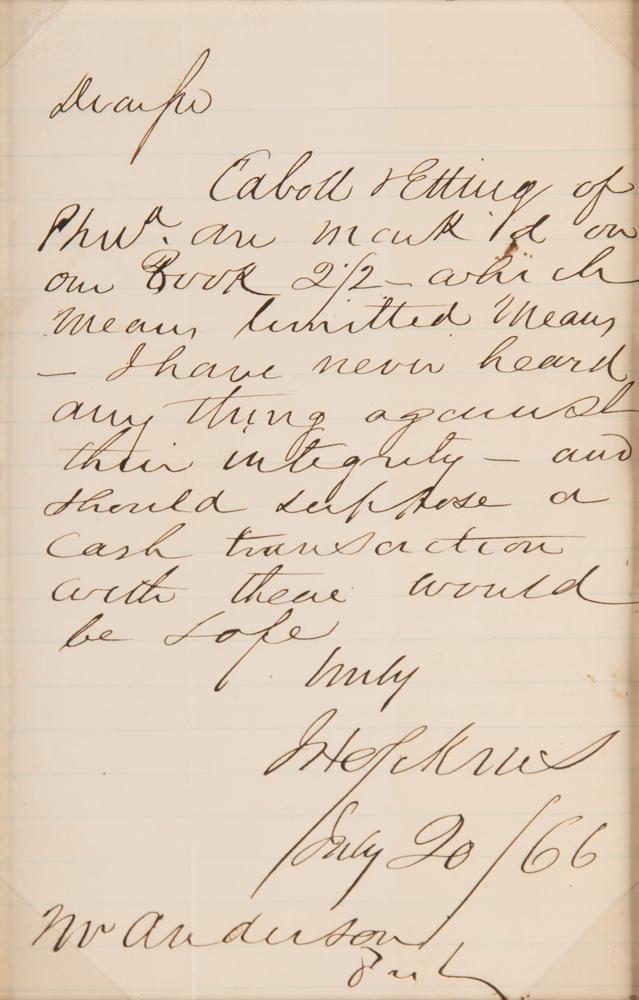 Dear Sir
Cabott & Etting of
Phila. are mark'd on
our Book 2/2 - which
means limitted means
- I have never heard
any thing against
their integrity - and
should suppose a
cash transaction
with them would
be safe
Truly
J Hopkins
July 20/66
Mr Anderson